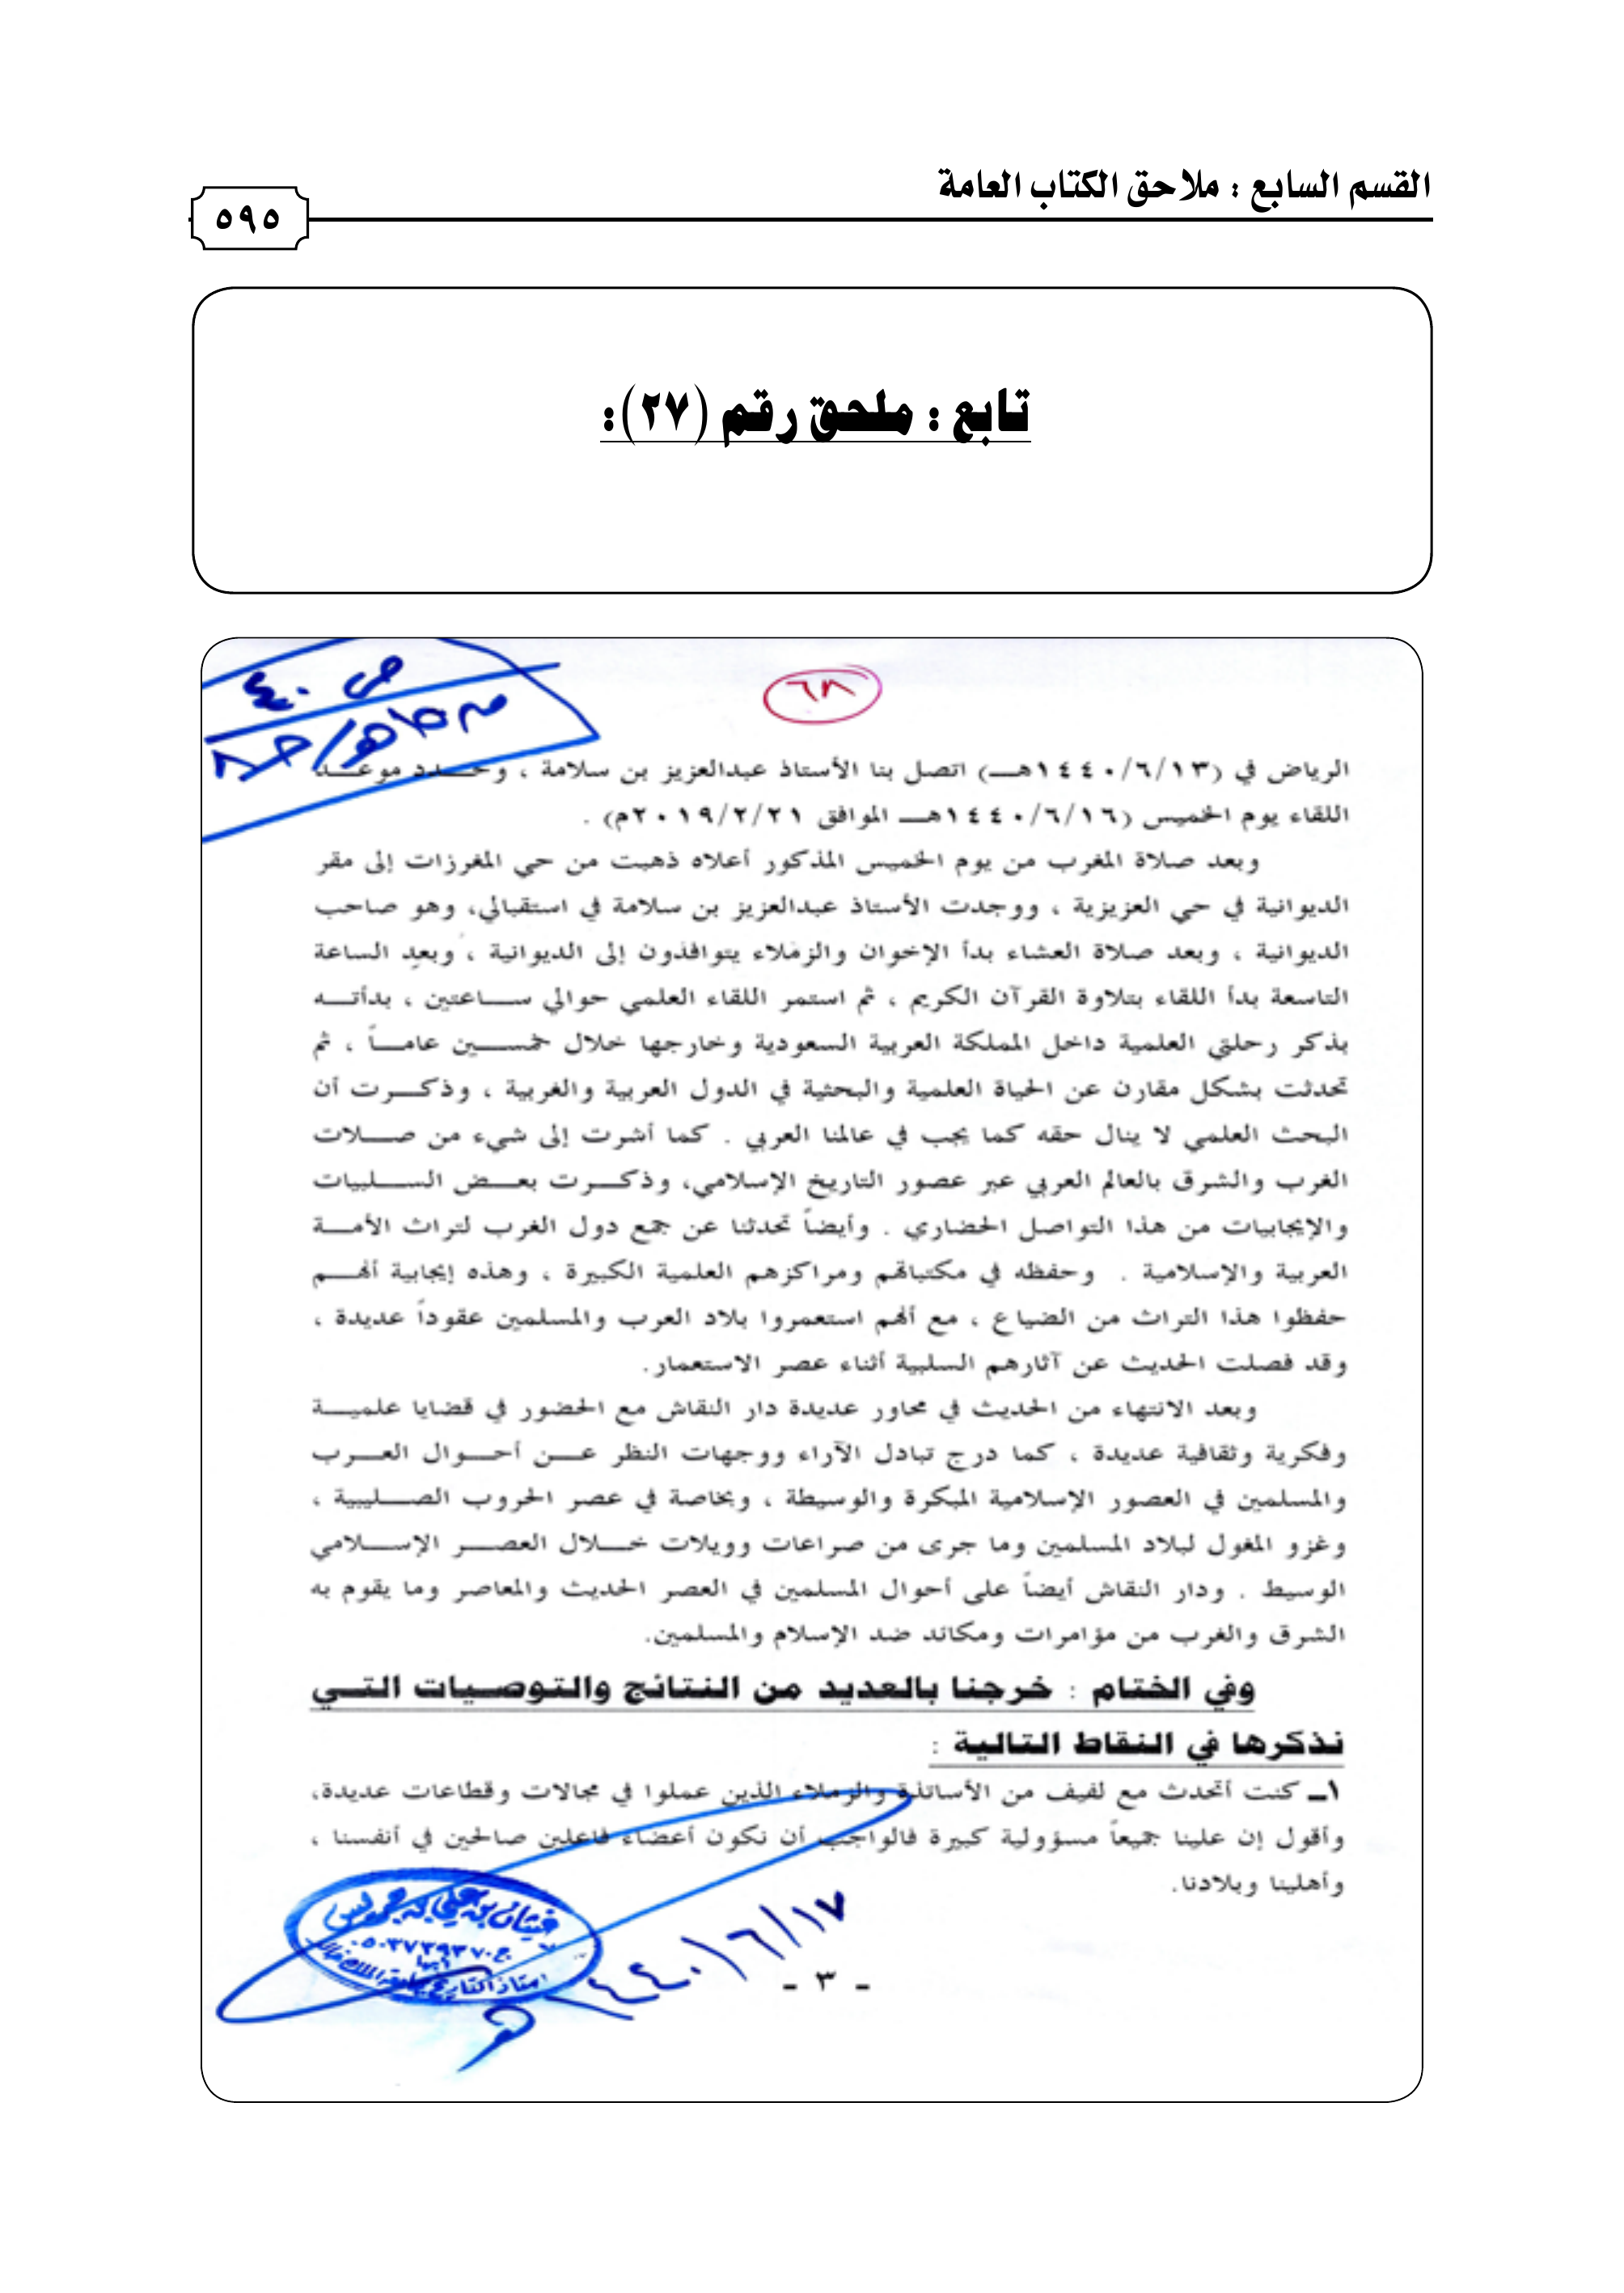 القسم السابع : ملاحق الكتاب العامة
٥٩٥
تابع : ملحق رقم (٢٧):
٦٨
ص ٤٠
الرياض في (١٤٤٠/٦/١٣هـ) اتصل بنا الأستاذ عبدالعزيز بن سلامة ، وحدد موعد
اللقاء يوم الخميس (١٤٤٠/٦/١٦هـ الموافق ٢٠١٩/٢/٢١م) .
وبعد صلاة المغرب من يوم الخميس المذكور أعلاه ذهبت من حي المغرزات إلى مقر
الديوانية في حي العزيزية ، ووجدت الأستاذ عبدالعزيز بن سلامة في استقبالي، وهو صاحب
الديوانية ، وبعد صلاة العشاء بدأ الإخوان والزملاء يتوافذون إلى الديوانية ، وبعد الساعة
التاسعة بدأ اللقاء بتلاوة القرآن الكريم ، ثم استمر اللقاء العلمي حوالي ساعتين ، بدأته
بذكر رحلتي العلمية داخل المملكة العربية السعودية وخارجها خلال خمسين عاماً ، ثم
تحدثت بشكل مقارن عن الحياة العلمية والبحثية في الدول العربية والغربية ، وذكرت أن
البحث العلمي لا ينال حقه كما يجب في عالمنا العربي . كما أشرت إلى شيء من صلات
الغرب والشرق بالعالم العربي عبر عصور التاريخ الإسلامي، وذكرت بعض السلبيات
والإيجابيات من هذا التواصل الحضاري . وأيضاً تحدثنا عن جمع دول الغرب لتراث الأمة
العربية والإسلامية . وحفظه في مكتباتهم ومراكزهم العلمية الكبيرة ، وهذه إيجابية أنهم
حفظوا هذا التراث من الضياع ، مع أنهم استعمروا بلاد العرب والمسلمين عقوداً عديدة ،
وقد فصلت الحديث عن آثارهم السلبية أثناء عصر الاستعمار.
وبعد الانتهاء من الحديث في محاور عديدة دار النقاش مع الحضور في قضايا علمية
وفكرية وثقافية عديدة ، كما درج تبادل الآراء ووجهات النظر عن أحوال العرب
والمسلمين في العصور الإسلامية المبكرة والوسيطة ، وبخاصة في عصر الحروب الصليبية ،
وغزو المغول لبلاد المسلمين وما جرى من صراعات وويلات خلال العصر الإسلامي
الوسيط . ودار النقاش أيضاً على أحوال المسلمين في العصر الحديث والمعاصر وما يقوم به
الشرق والغرب من مؤامرات ومكائد ضد الإسلام والمسلمين.
وفي الختام : خرجنا بالعديد من النتائج والتوصيات التي
نذكرها في النقاط التالية :
١ـ كنت أتحدث مع لفيف من الأساتذة والزملاء الذين عملوا في مجالات وقطاعات عديدة،
وأقول إن علينا جميعاً مسؤولية كبيرة فالواجب أن نكون أعضاء فاعلين صالحين في أنفسنا ،
وأهلينا وبلادنا.
غيثان بن علي بن جريس
أبها
أستاذ التاريخ بجامعة الملك خالد
١٤٤٠/٦/١٧هـ
- ٣ -